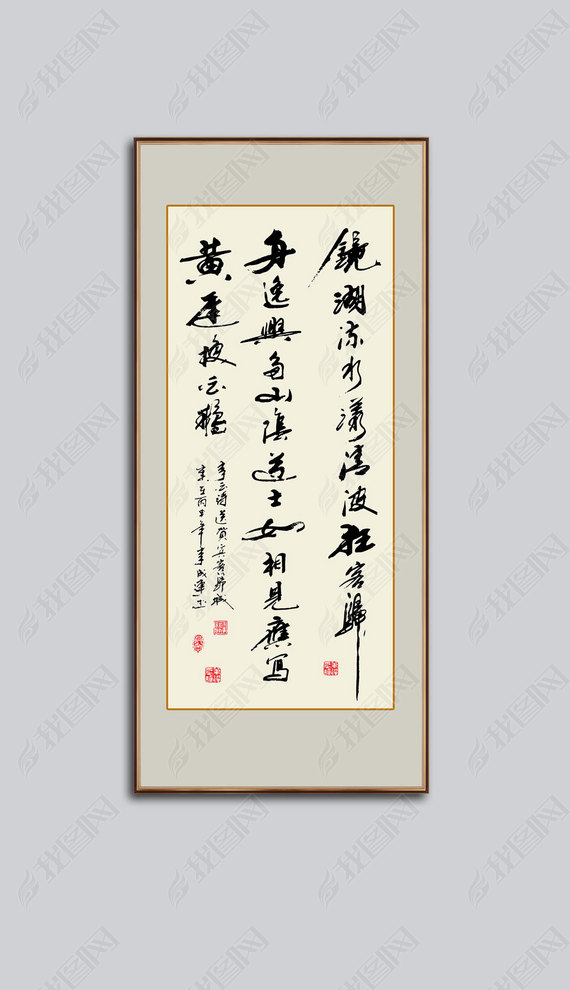 鏡湖流水漾清波狂客歸
舟逸興多山陰道士如相見應寫
黄庭换白鵝
李白詩送賀賓客歸越
丙子年李成
我图网